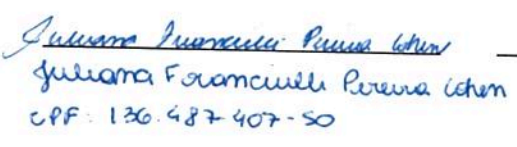 Juliana Franciulli Pereira Cohen
Juliana Franciulli Pereira Cohen
CPF: 136.487-407-50